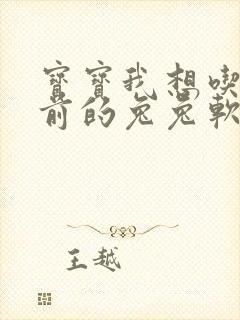 寶寶我想喫
前的兔兔軟
王越